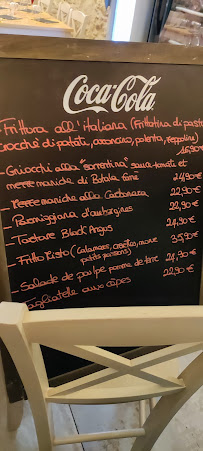 Coca-Cola
Frittura all'italiana (Frittatina di pasta
crocchè di patate, arancino, polenta, zeppoline)
16,90€
- Gnocchi alla "sorrentina" sauce tomate et
mezze maniche di Bufala fumé 24,90€
- Mezze maniche alla Carbonara 22,90€
- Parmiggiana d'aubergines 22,90€
- Tartare Black Angus 24,90€
- Fritto Misto (Calamars, crevettes,
petits poissons) 35,90€
- Salade de poulpe pomme de terre 24,90€
- Tagliatelle aux cèpes 22,90€